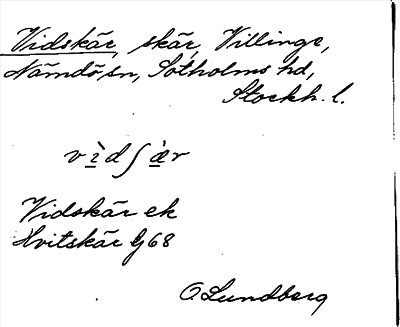 Vidskär, skär, Villinge,
Nämdö sn, Sotholms hd,
Stockh. l.
vìdʃæ̀r
Vidskär ek
Hvitskär Gj 68
O Lundberg